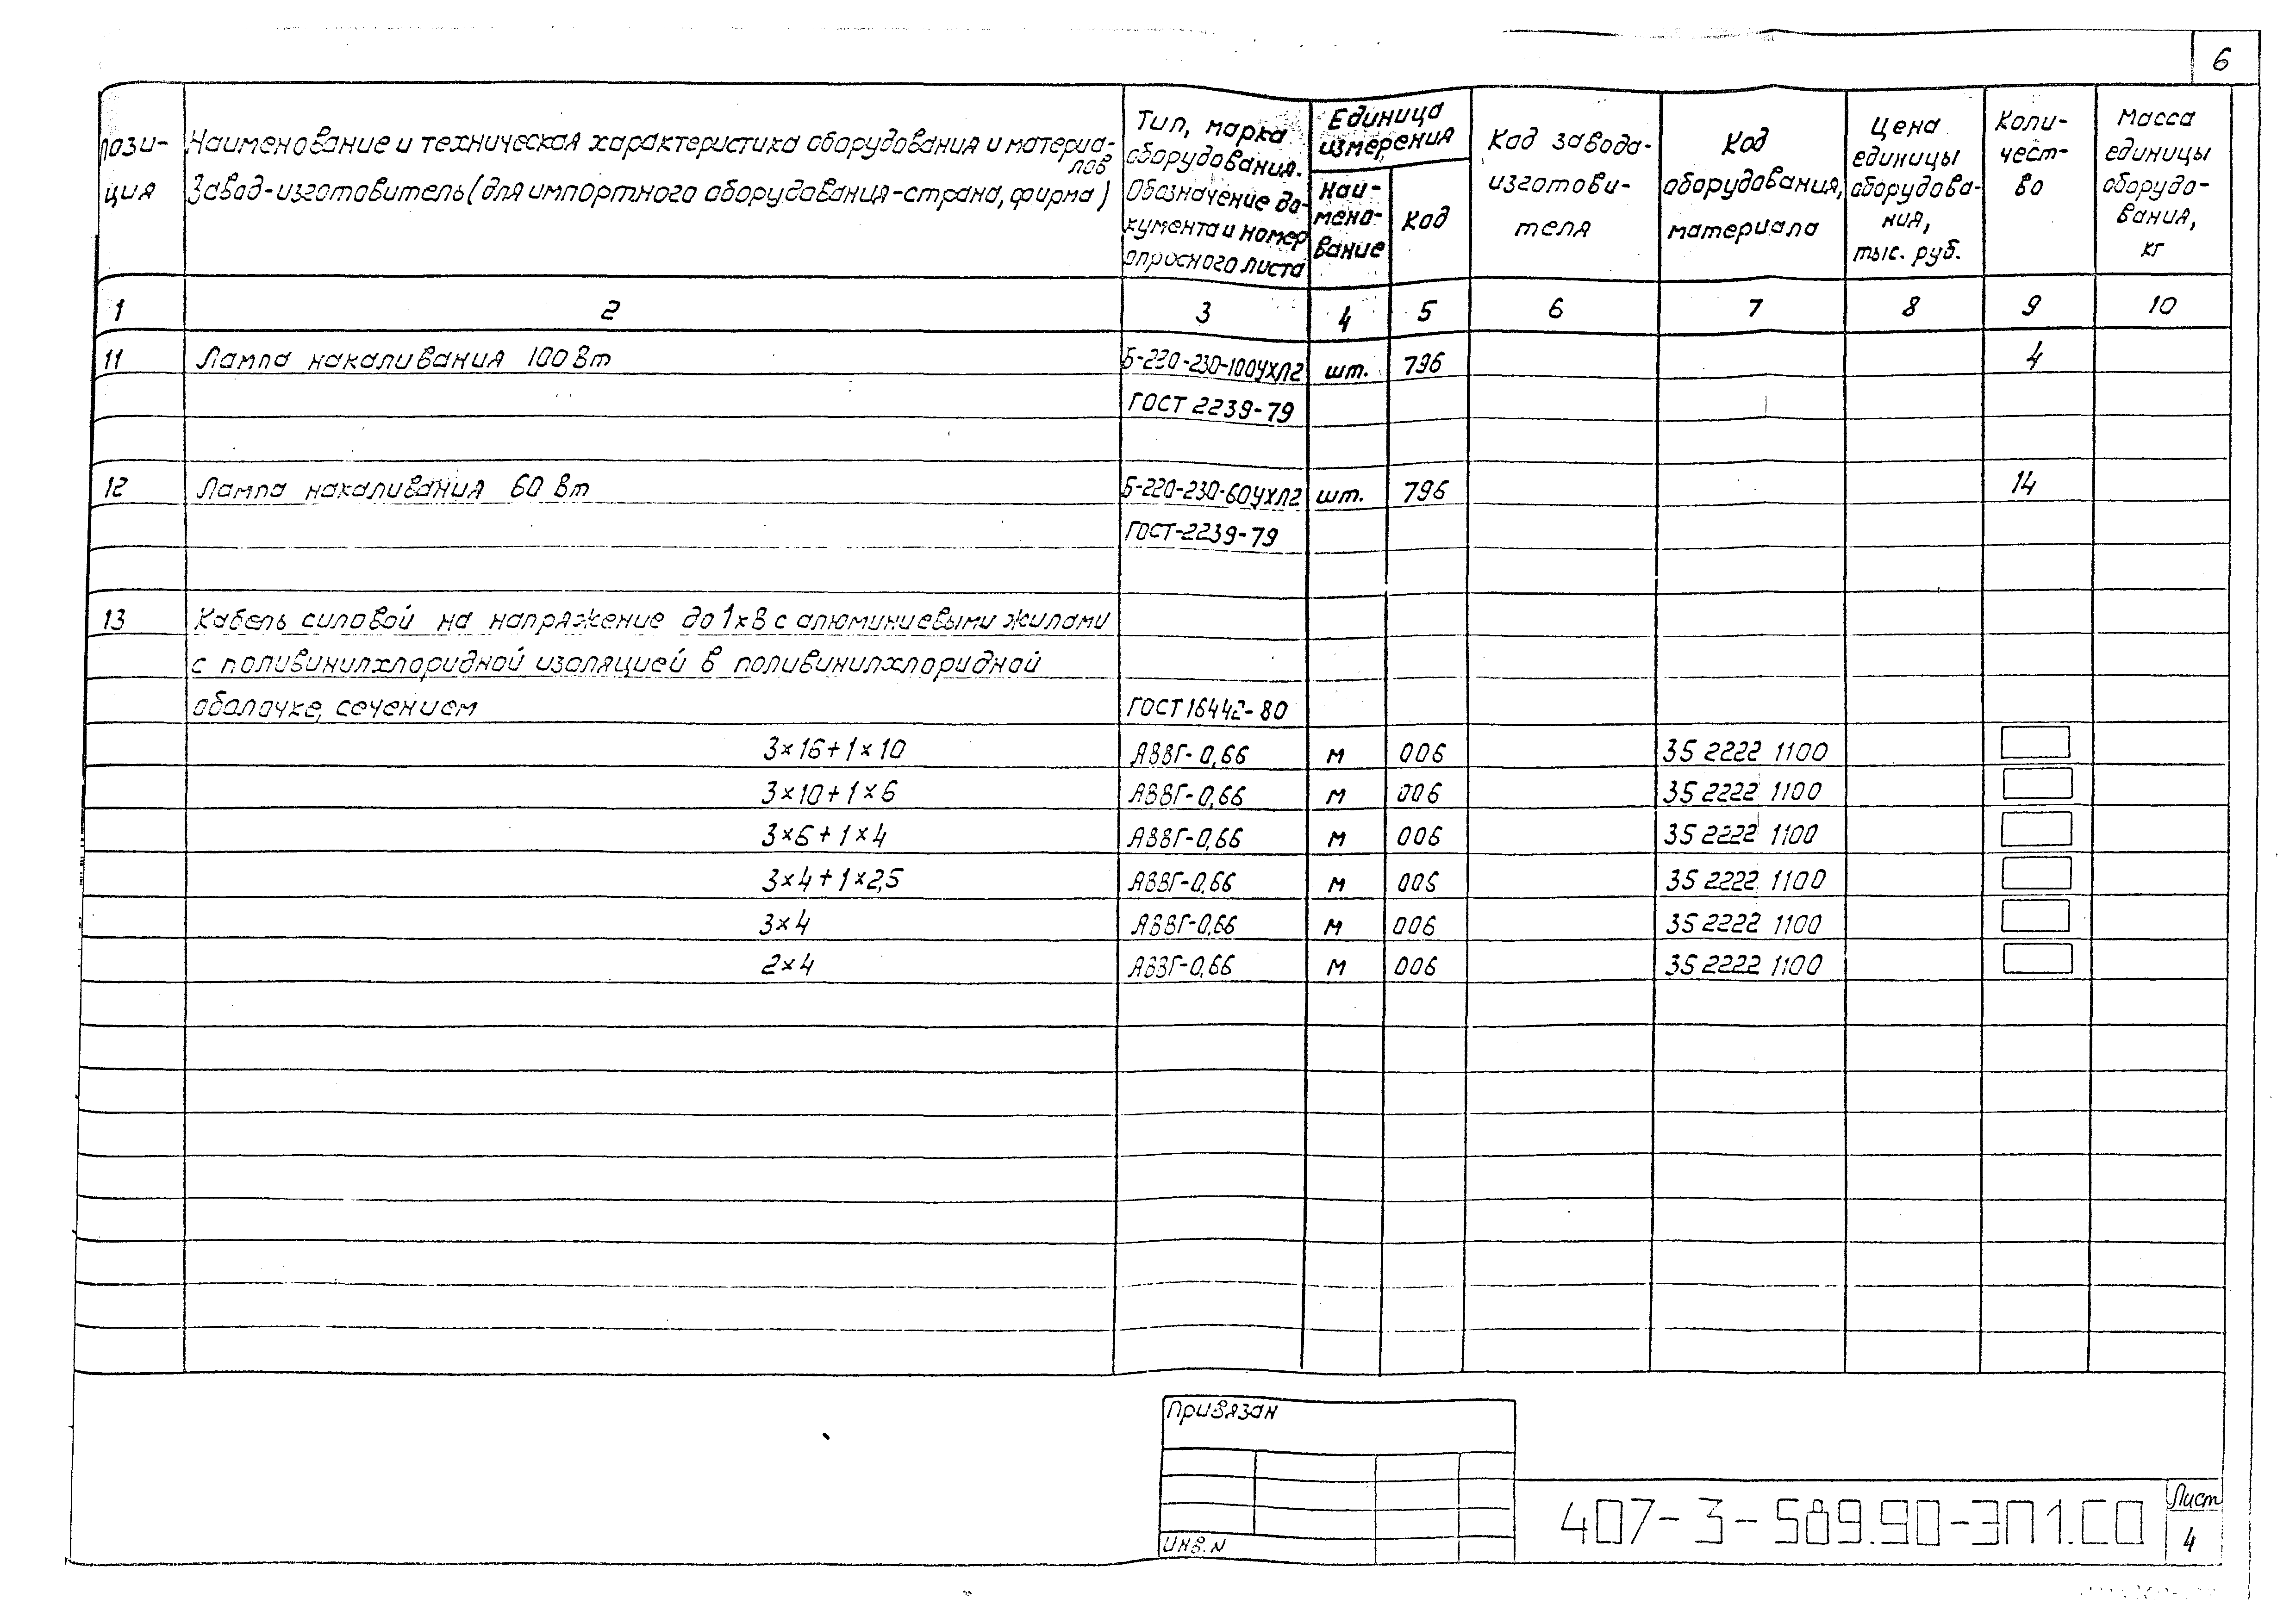 6
Пози-
ция
Наименование и техническая характеристика оборудования и материа-
лов
Завод-изготовитель (для импортного оборудования-страна, фирма)
Тип, марка
оборудования.
Обозначение до-
кумента и номер
опросного листа
Единица
измерения
Наи-
мено-
вание
Код
Код завода-
изготови-
теля
Код
оборудования,
материала
Цена
единицы
оборудова-
ния,
тыс. руб.
Коли-
чест-
во
Масса
единицы
оборудо-
вания,
кг
1 2 3 4 5 6 7 8 9 10
11 Лампа накаливания 100 Вт Б-220-230-100УХЛ2 шт. 796 4
ГОСТ 2239-79
12 Лампа накаливания 60 Вт Б-220-230-60УХЛ2 шт. 796 14
ГОСТ-2239-79
13 Кабель силовой на напряжение до 1кВ с алюминиевыми жилами
с поливинилхлоридной изоляцией в поливинилхлоридной
оболочке, сечением ГОСТ 16442-80
3×16+1×10 АВВГ-0,66 м 006 35 2222 1100
3×10+1×6 АВВГ-0,66 м 006 35 2222 1100
3×6+1×4 АВВГ-0,66 м 006 35 2222 1100
3×4+1×2,5 АВВГ-0,66 м 006 35 2222 1100
3×4 АВВГ-0,66 м 006 35 2222 1100
2×4 АВВГ-0,66 м 006 35 2222 1100
Привязан
Инв. N
407-3-589.90-ЭП1.СО
Лист
4